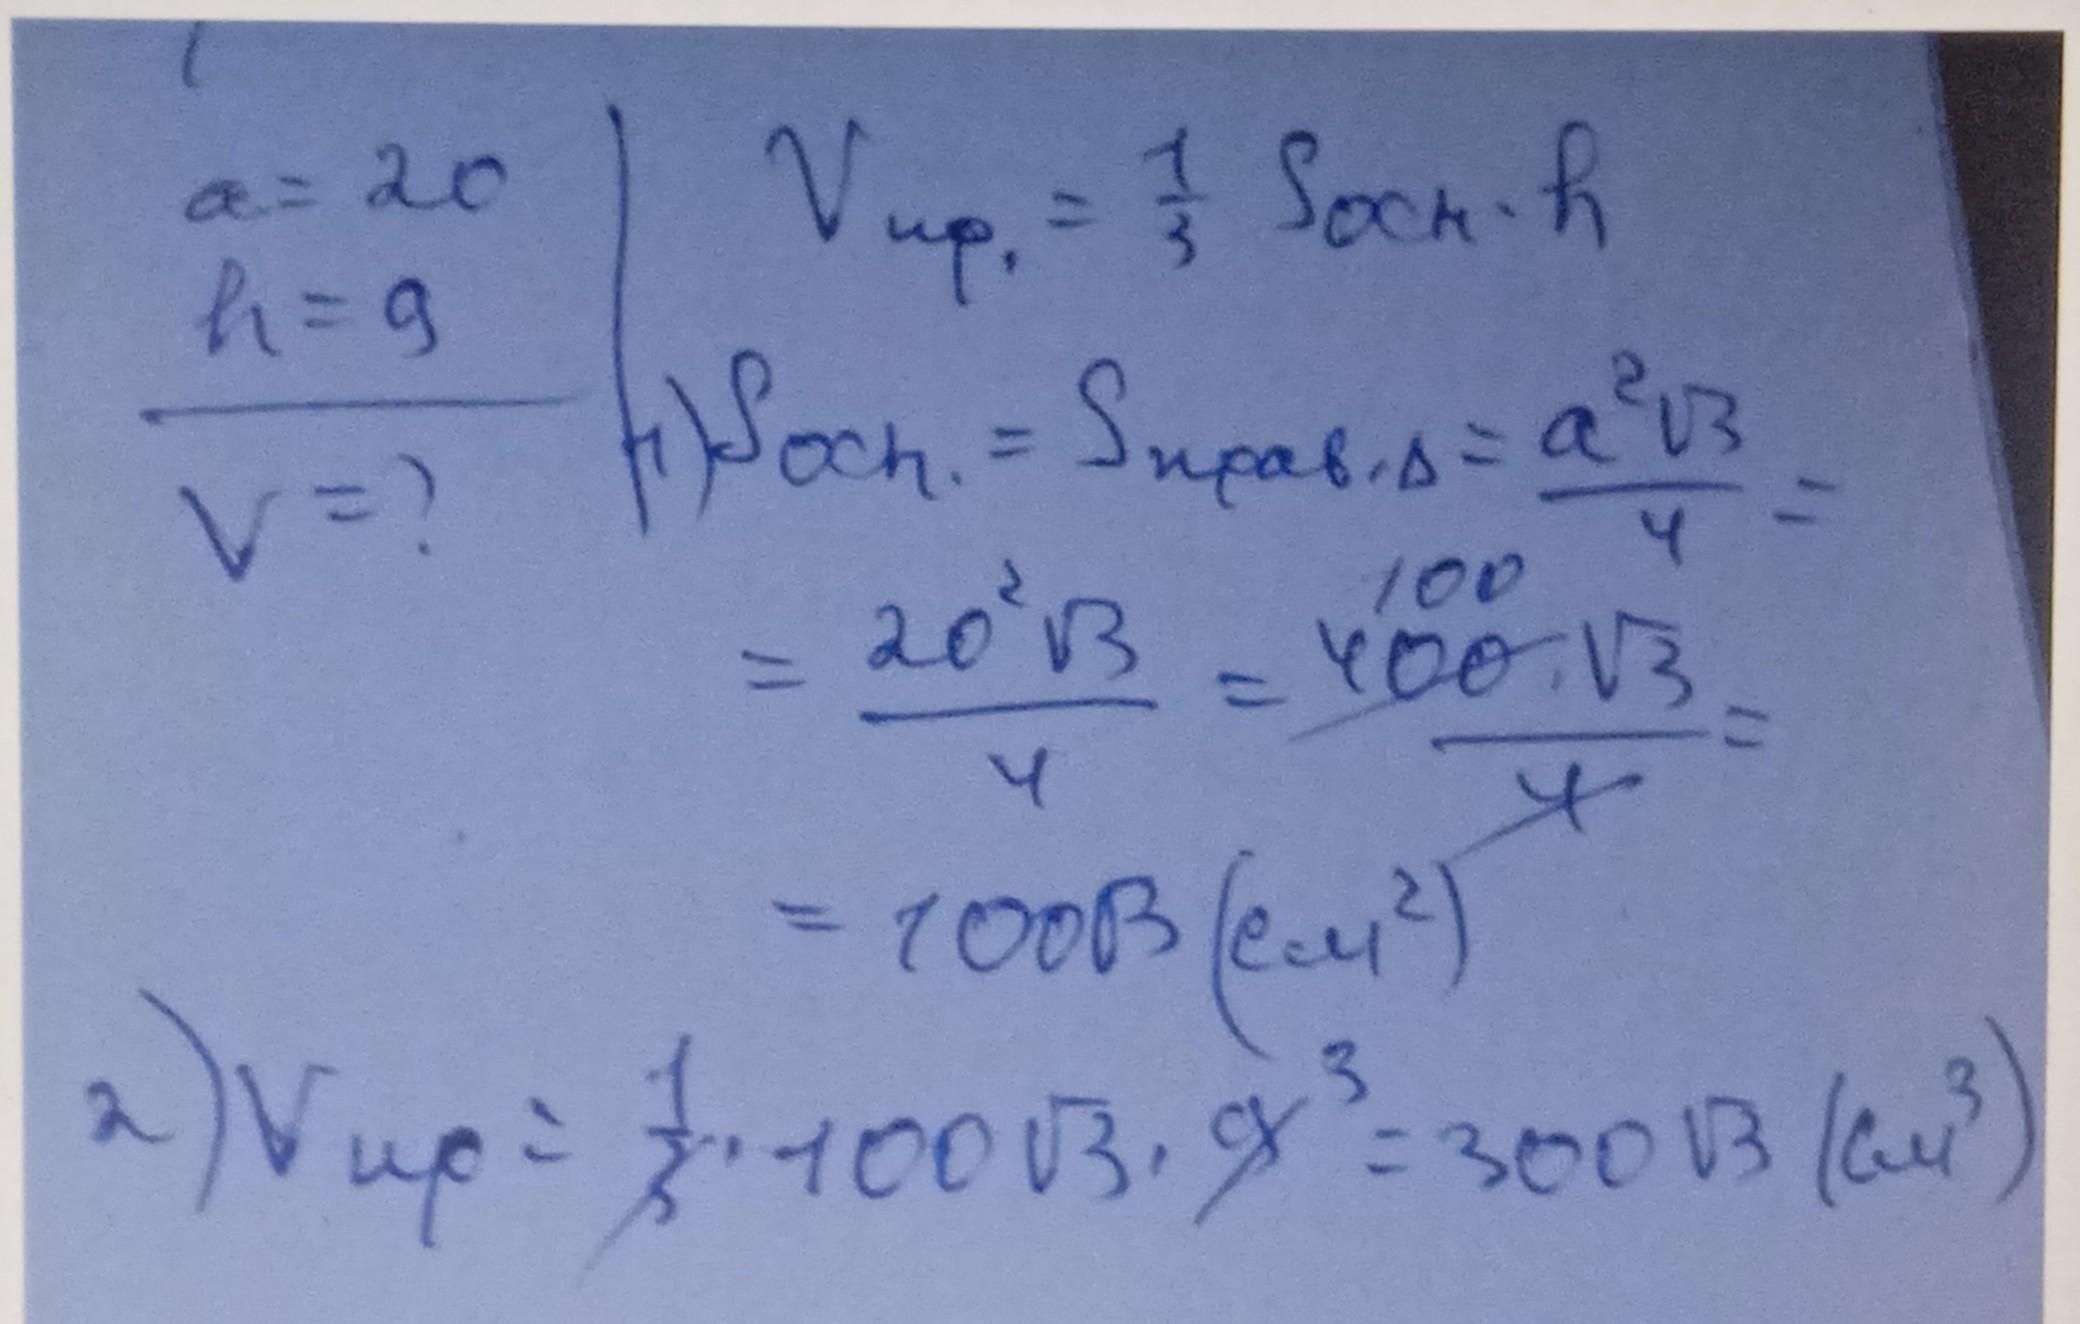 a = 20
h = 9
V = ?
V пир. = 1/3 Sосн · h
1) Sосн. = Sправ. Δ = a²√3/4 =
= 20²√3/4 = 100 400 · √3/4 =
= 100√3 (см²)
2) V пир = 1/3 · 100√3 · 9 3 = 300√3 (см³)